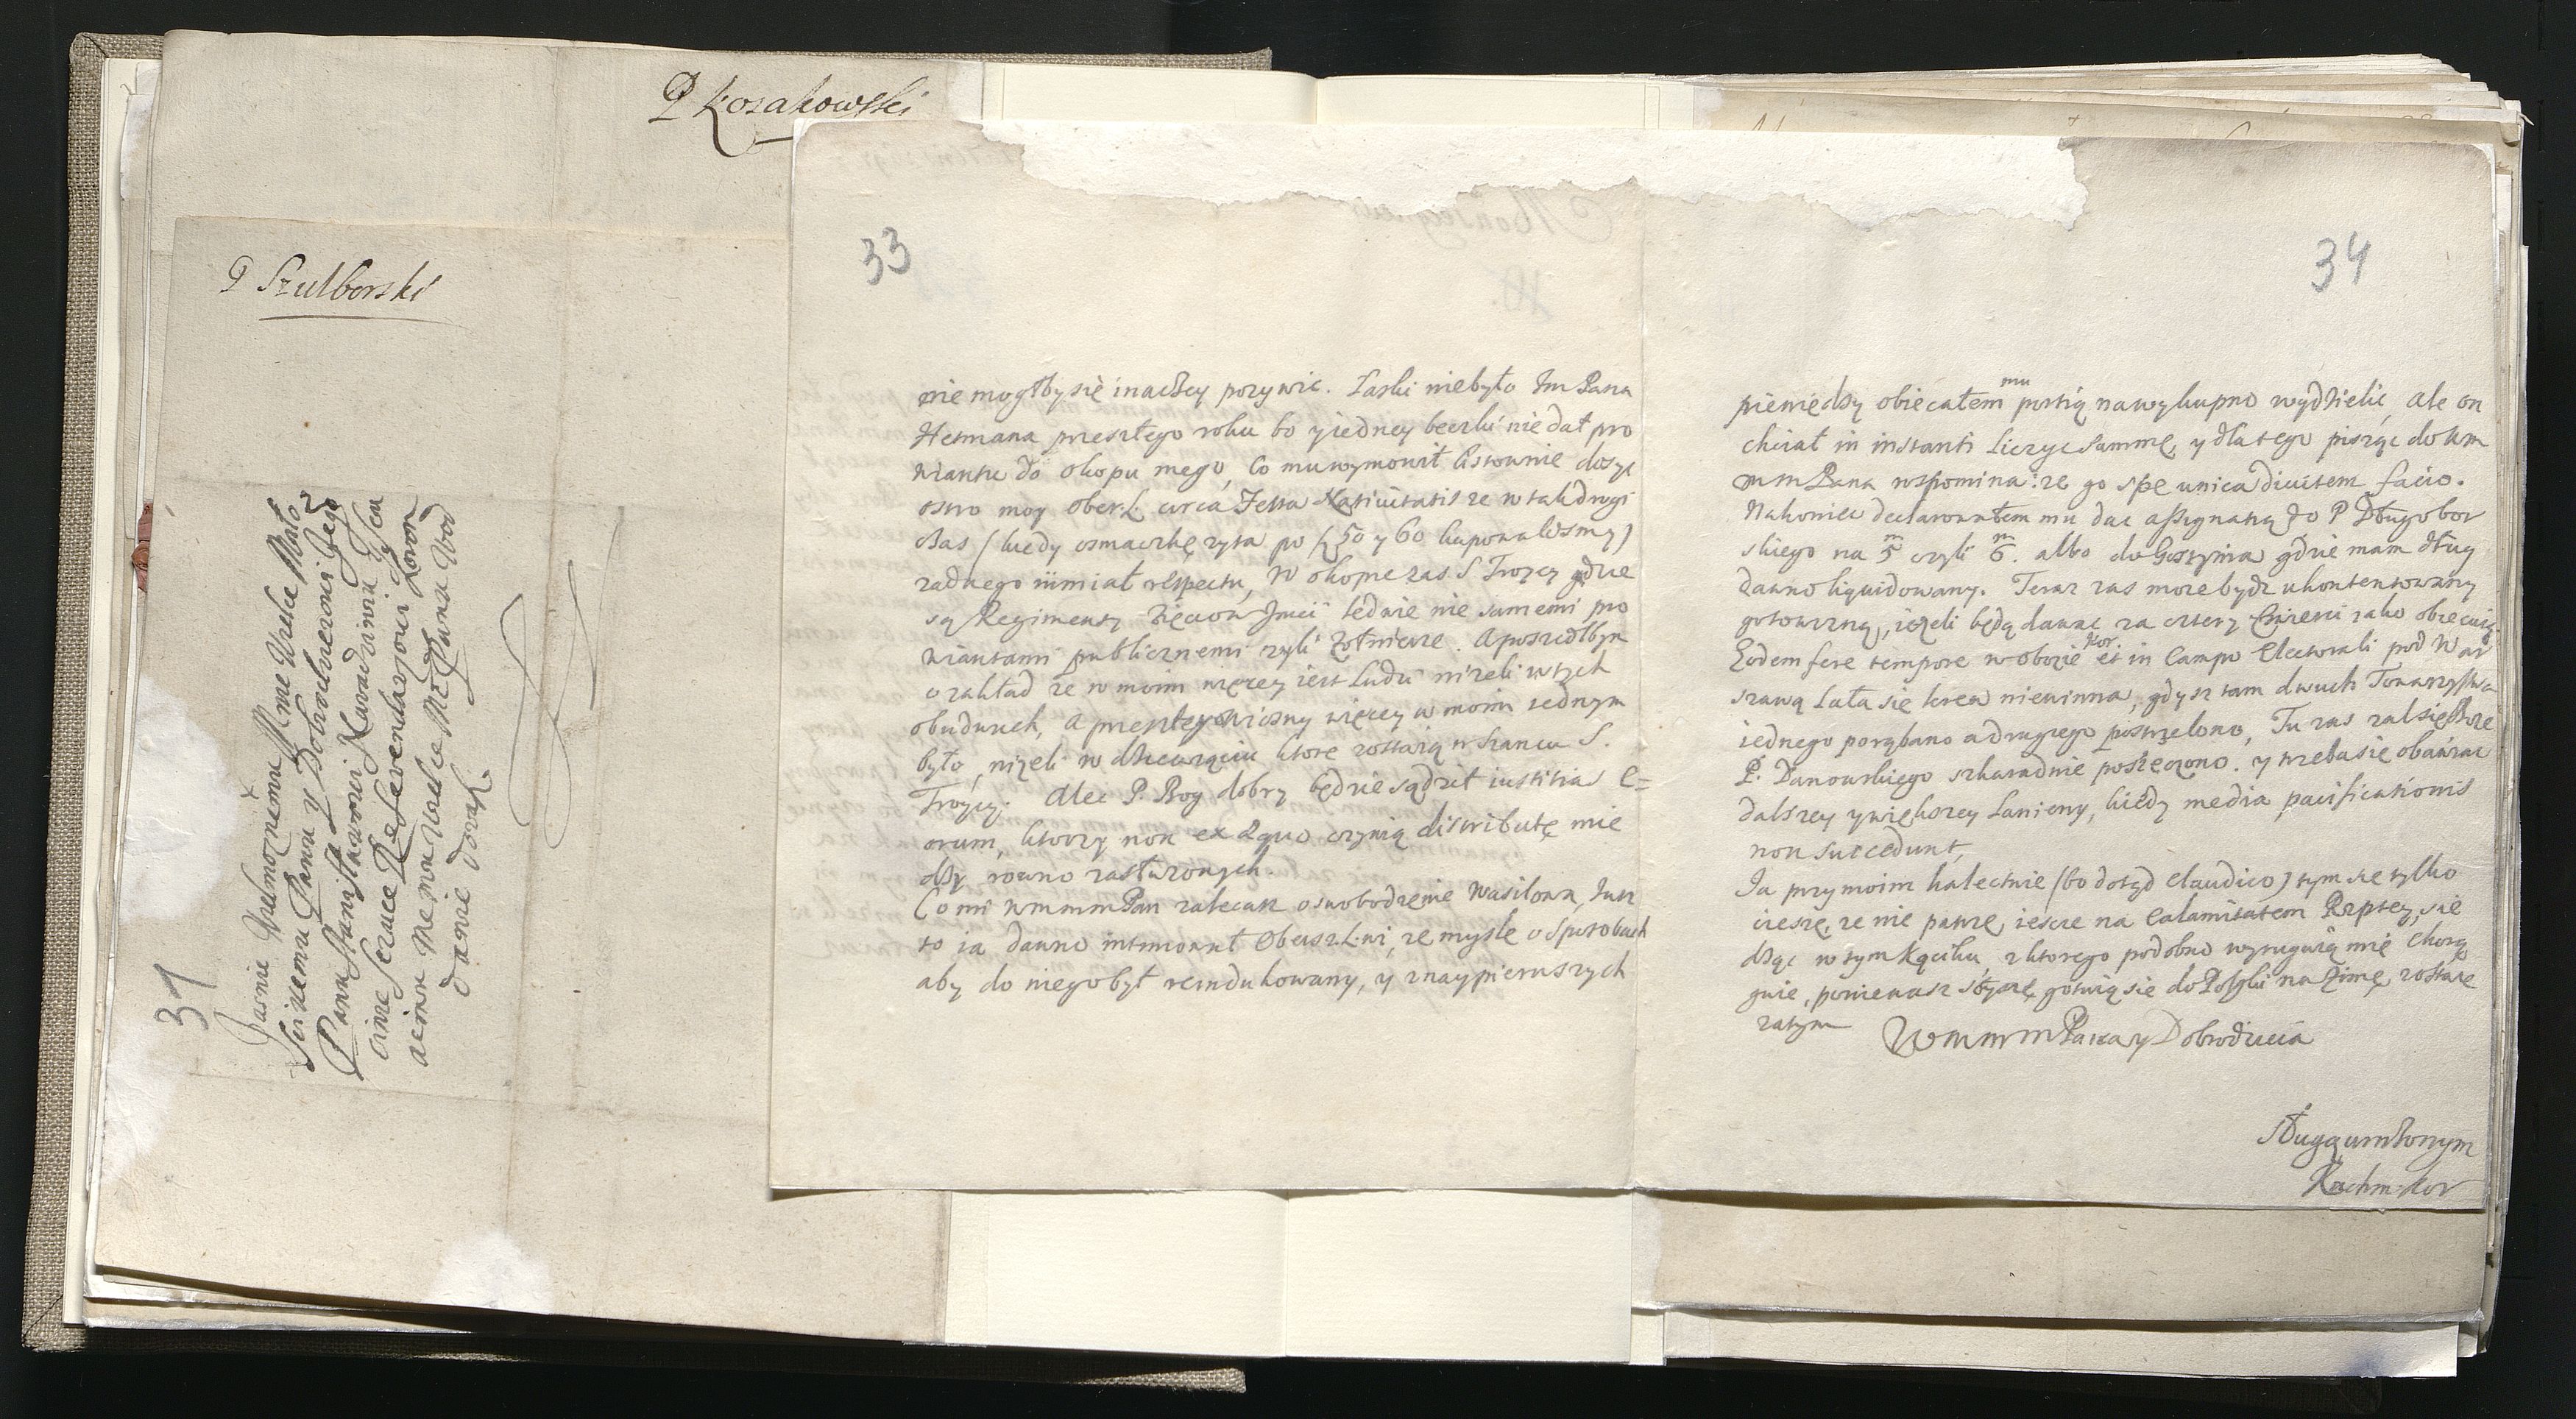 P Kosakowski
P Szulborski
31
Jasnie Wielmoznemu Mnie Wielce Mosc
Sciwemu Panu y Dobrodzieiowi Jego
Panu Stanisławowi
cinie Referendarzowi Koron
a mnie Wielce Msc Panu Dob
danie dorąk.
33
nie mogłby się inaczey pozywic. Łaski niebyło Im Pana
Hetmana preszłego roku bo y iedney beczki nie dał pro
wiantu do okopu mego, Co mu wymowił listownie dosyc
ostro moy Ober.L. circa Festa Nativitatis ze w tak drogi
czas (kiedy osmaczkę zyta po f 50 y 60 kupowalismy)
zadnego nimiał respectu, W okopie zas S Troycy gdzie
są Regimenty Zięciow Jmci ledwie nie samemi pro
wiantami publicznemi zyli zołnierze. A poszedłbym
o zakład ze w moim więcey iest ludu nizeli w tych
obudwuch, a preszłey wiosny więcey w moim iednym
było, nizeli w dziewiąciu ktore zostaią w szancu S.
Troycy. Alec P. Bog dobry będzie sądził iustitias e=
orum, ktorzy non ex æquo czynią distributę mie
dzy rowno zasłuzonych.
Co mi WmmmPan zalecasz oswobodzenie Wasilowa, Iusz
to ia dawno intimował Obersz.L:wi, ze mysle o sposobach
aby do niego był reindukowany, y z naypierwszych
34
pieniędzy obiecałem mu portią na wykupno wydzielic, ale on
chciał in instanti liczyc summę, y dla tego pisząc do Wm
mm Pana wspomina: ze go spe unica divitem facio.
Nakoniec declarowałem mu dac assignatią do P Długobor
skiego na 5 m czyli 6 m. albo do Gostynia gdzie mam dług
dawno liquidowany. Teraz zas moze bydz ukontentowany
gotowizną, iezeli będą dawac za cztery cwierci iako obiecuią.
Eodem fere tempore w obozie Kor. et in Campo Electorali pod War
szawą lała się krew niewinna, gdysz tam dwuch Towarzystwa
iednego porąbano a drugiego postrzelono, Tu zas zal się Boze
P. Danowskiego szkaradnie posieczono. y trzeba się obawiac
dalszey y większey łanieny, kiedy media pacificationis
non succedunt,
Ia przy moim kalectwie (bo dotąd claudico) tym się tylko
cieszę, ze nie patrzę, ieszcze na Calamitatem Rzptey, sie
dząc w tym kąciku z ktorego podobno wyrugwią mię chorą
gwie, poniewasz słyszę, gotwią się do Polski na zimę, zostaie
zatym WmmmPana y Dobrodzieia
sługą unizonym
Rachm: Kor